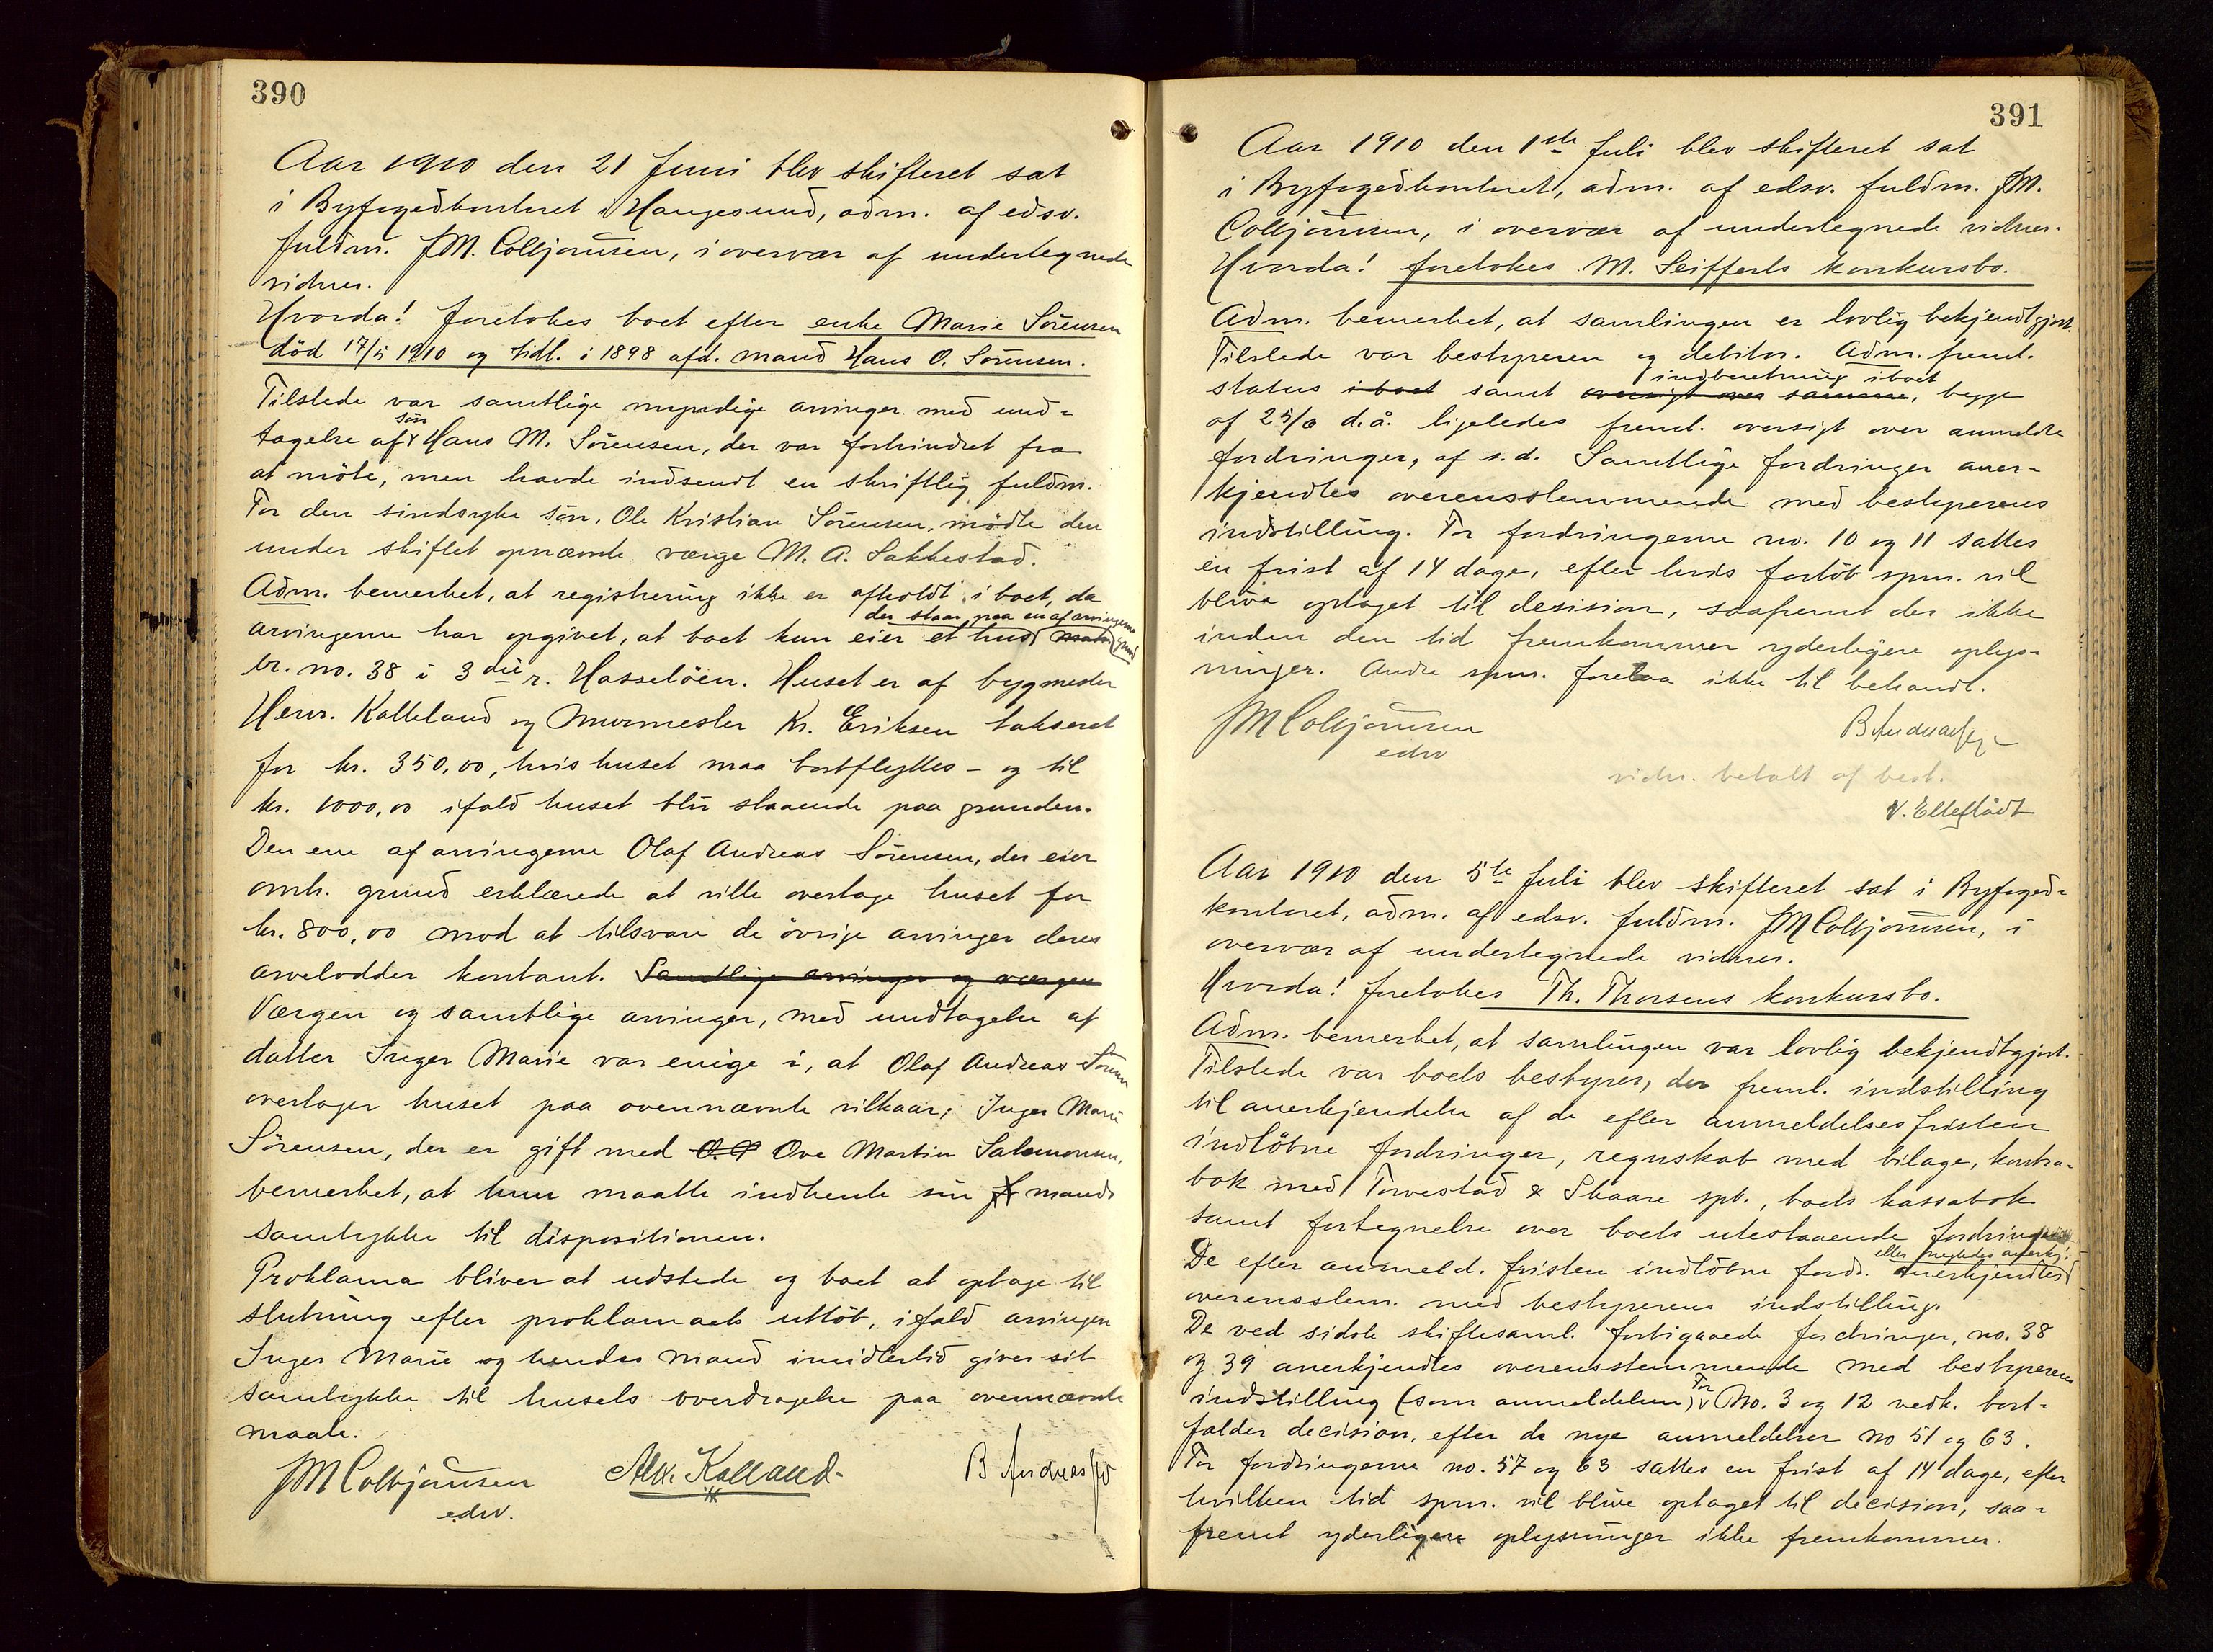 390
Aar 1910 den 21 Juni blev skifteret sat
i Byfogedkontoret i Haugesund, adm. af edsv.
fuldm. JM. Colbjørnsen, i overvær af undertegnede
vidner.
Hvorda! foretokes boet efter enke Marie Sörensen
död 17/5 1910 og tidl. i 1898 afd. mand Hans O. Sörensen.
Tilstede var samtlige myndige arvinger med und-
tagelse af sön Hans M. Sörensen, der var forhindret fra
at möte, men havde indsendt en skriftlig fuldm.
For den sindsyke sön, Ole Kristian Sörensen, mödte den
under skiftet opnævnte værge M. A. Sakkestad.
Adm. bemerket, at registrering ikke er afholdt i boet, da
der staar paa en af arvingernes grund
arvingerne har opgivet, at boet kun eier et hus
br. no. 38 i 3die r. Hasselöen. Huset er af bygmester
Henr. Kalleland og murmester Kr. Eriksen takseret
for kr. 350,00, hvis huset maa bortflyttes – og til
kr. 1000,00 ifald huset blir staaende paa grunden.
Den ene af arvingerne Olaf Andreas Sörensen, der eier
omh. grund erklærede at ville overtage huset for
kr. 800,00 mod at tilsvare de övrige arvinger deres
arvelodder kontant. Samtlige arvinger og værgen
Værgen og samtlige arvinger, med undtagelse af
datter Inger Marie var enige i, at Olaf Andreas Sörensen
overtager huset paa ovennævnte vilkaar; Inger Marie
Sörensen, der er gift med Ove Martin Salomonsen,
bemerket, at hun maatte indhente sin mands
samtykke til dispositionen.
Proklama bliver at udstede og boet at optage til
slutning efter proklamaets utlöb, ifald arvingen
Inger Marie og hendes mand imidlertid giver sit
samtykke til husets overdragelse paa ovennævnte
maate.
JM Colbjørnsen Alex. Kalland B Andreassen
edsv.
391
Aar 1910 den 1ste Juli blev skifteret sat
i Byfogedkontoret, adm. af edsv. fuldm. JM.
Colbjørnsen, i overvær af undertegnede vidner.
Hvorda! foretokes M. Seifferts konkursbo.
Adm. bemerket, at samlingen er lovlig bekjendtgjort.
Tilstede var bestyreren og debitor. Adm. freml.
indberetning i boet
status i boet samt oversigt over samme, begge
af 25/6 d.å. ligeledes freml. oversigt over anmeldte
fordringer, af s.d. Samtlige fordringer aner-
kjendtes overensstemmende med bestyrerens
indstilling. For fordringerne no. 10 og 11 sattes
en frist af 14 dage, efter hvis forlöb spm. vil
blive optaget til desision, saafremt der ikke
inden den tid fremkommer yderligere oplys-
ninger. Andre spm. forelaa ikke til behandl.
JM Colbjørnsen B Andreassen
edsv
vidn. betalt af best.
V. Elleflådt
Aar 1910 den 5te Juli blev skifteret sat i Byfoged-
kontoret, adm. af edsv. fuldm. JM Colbjørnsen, i
overvær af undertegnede vidner.
Hvorda! foretokes Th. Thorsens konkursbo.
Adm. bemerket, at samlingen var lovlig bekjendtgjort.
Tilstede var boets bestyrer, der freml. indstilling
til anerkjendelse af de efter anmeldelsesfristen
indlöbne fordringer, regnskab med bilage, kontra-
bok med Torvestad & Skaare spb., boets kassabok
samt fortegnelse over boets utestaaende fordringer
eller negtedes anerkj.
De efter anmeld. fristen indlöbne fordr. anerkjendtes
overensstem. med bestyrerens indstilling.
De ved sidste skiftesaml. forbigaaede fordringer, no. 38
og 39 anerkjendtes overensstemmende med bestyrerens
indstilling (som anmeldelsen) For No. 3 og 12 vedk. bort-
falder decision, efter de nye anmeldelser no 51 og 63.
For fordringerne no. 57 og 63 sattes en frist af 14 dage, efter
hvilken tid spm. vil blive optaget til decision, saa-
fremt yderligere oplysninger ikke fremkommer.